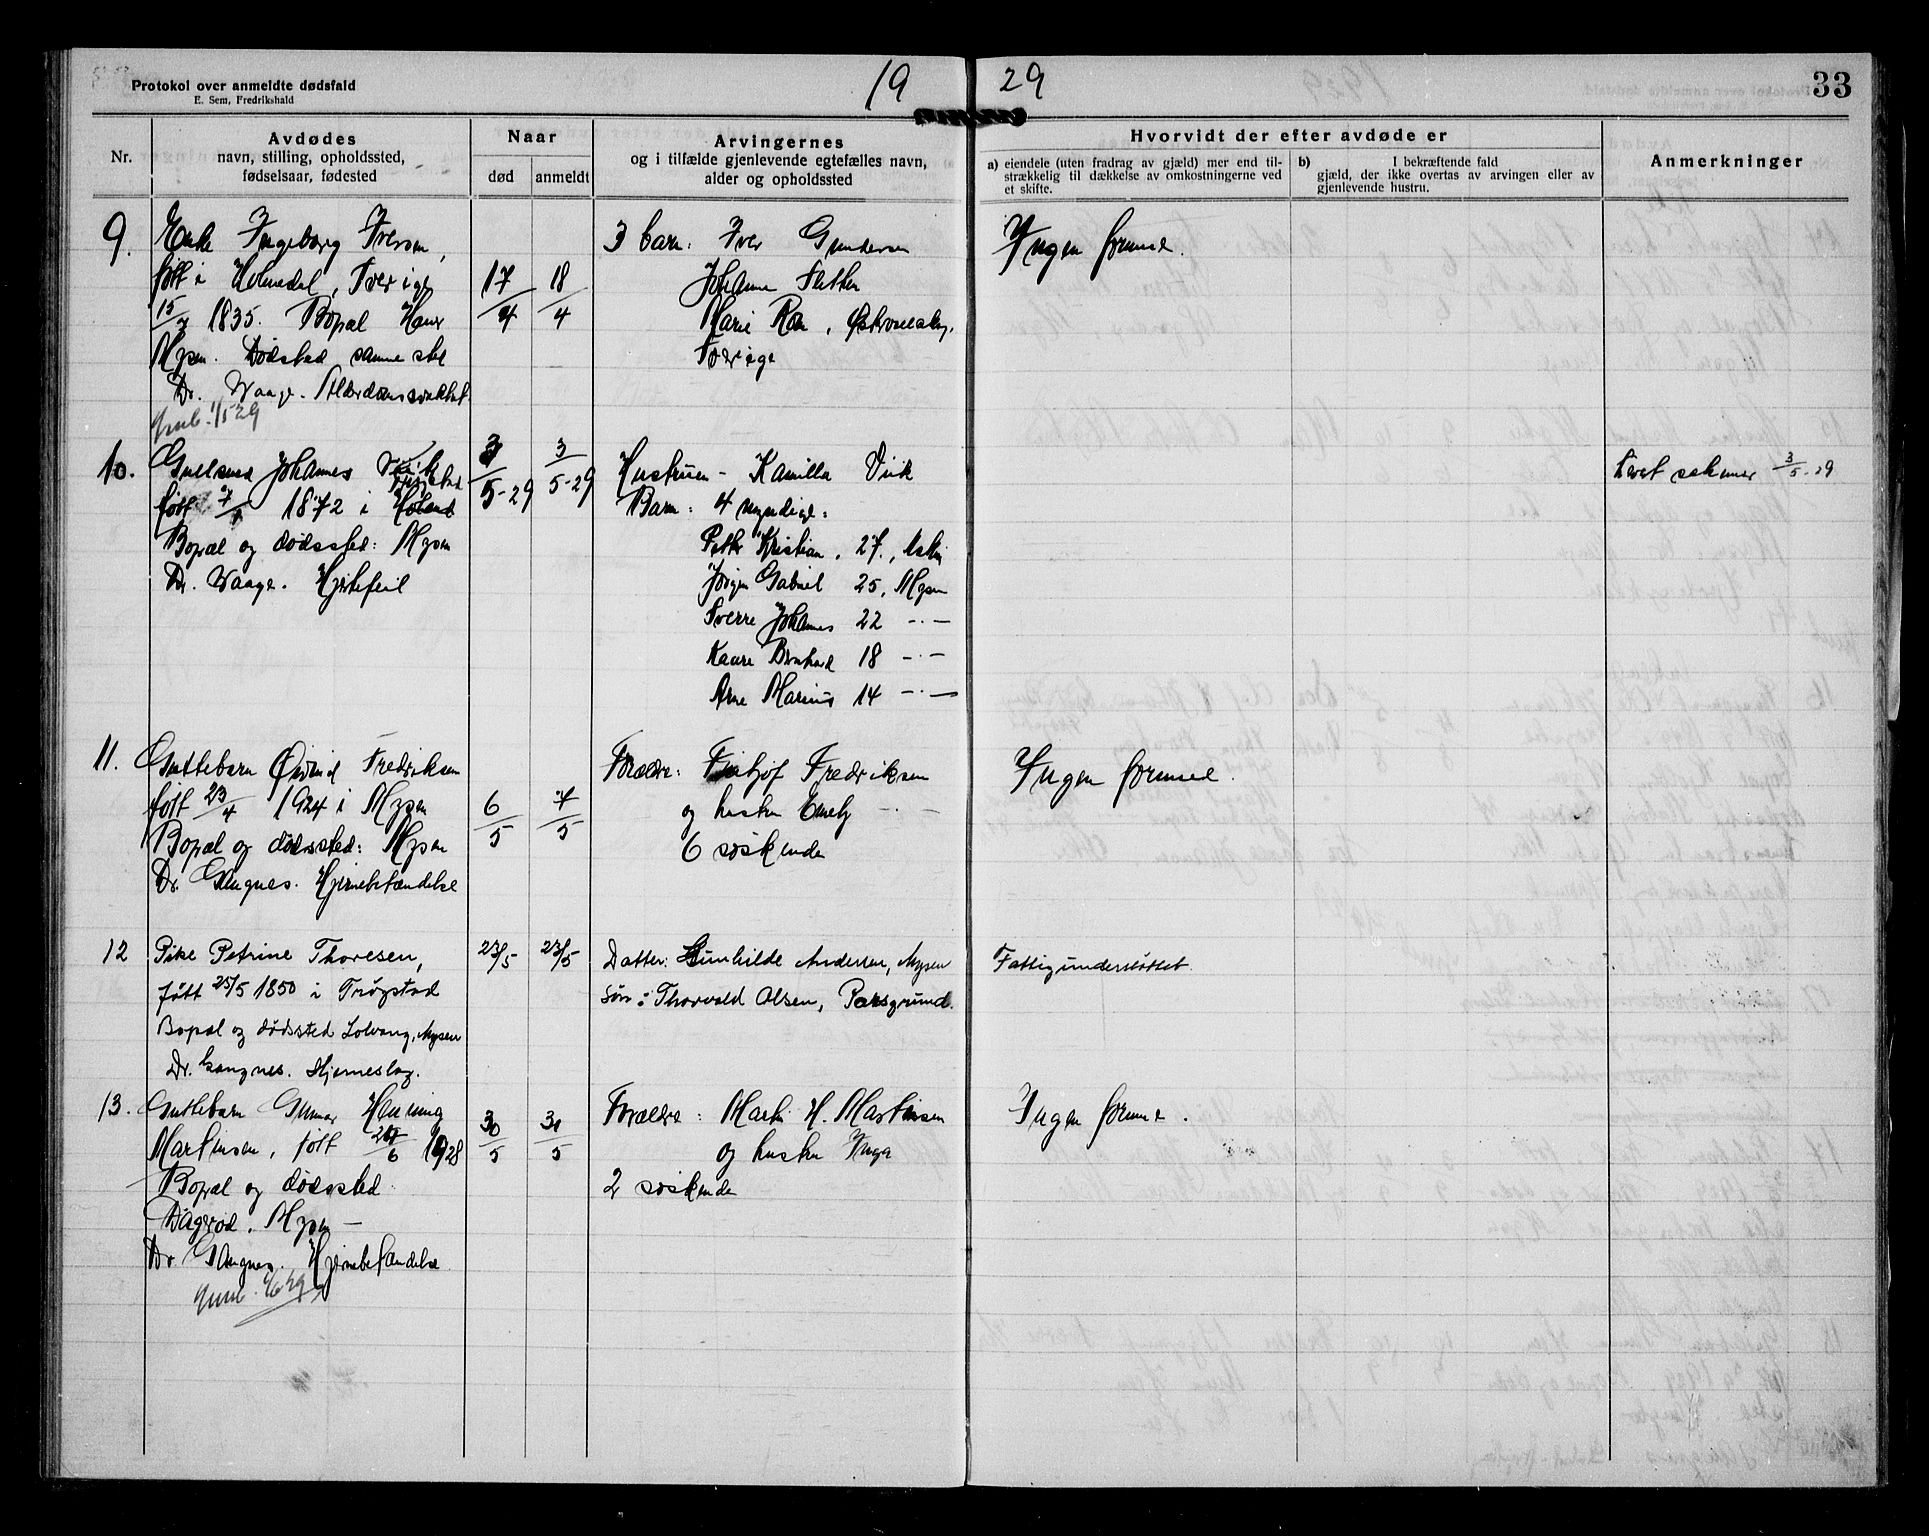 Protokol over anmeldte dødsfald
E. Sem, Fredrikshald
19 29
33
Nr.
Avdødes
navn, stilling, opholdssted,
fødselsaar, fødested
Naar
død
anmeldt
Arvingernes
og i tilfælde gjenlevende egtefælles navn,
alder og opholdssted
Hvorvidt der efter avdøde er
a) eiendele (uten fradrag av gjæld) mer end til-
strækkelig til dækkelse av omkostningerne ved
et skifte.
b) I bekræftende fald
gjæld, der ikke overtas av arvingen eller av
gjenlevende hustru.
Anmerkninger
9. Enke Ingeborg Iversen,
født i Holmedal, Sverige
15/7 1835. Bopæl Haug
Mysen. Dødsted samme sted
Dr. Waage. Alderdomssvakhet.
1/5 29
17/4
18/4
3 barn: Iver Gundersen
Johanne Sletten
Marie , 
Sverige
Ingen formue.
10. Johannes Vik
født 1872 i
Bopæl og dødssted: Mysen
Dr. Waage. Hjertefeil
3/5-29
3/5-29
Hustruen - Kamilla Vik
Barn: 4 myndige:
Petter Kristian, 27, Askim
Jørgen Gabriel 25, Mysen
Sverre Johannes 22 -"-
Kaare Bernhard 18 -"-
Arne Marius 14 -"-
3/5-29
11. Guttebarn Øivind Fredriksen
født 23/4 1924 i Mysen
Bopæl og dødssted: Mysen
Dr. Gangnes. Hjernebetændelse
6/5
7/5
Forældre: Fritjof Fredriksen
og hustru Emely -"-
6 søskende
Ingen formue.
12 Pike Petrine Thoresen,
født 25/5 1850 i Trøgstad
Bopæl og dødssted Solvang, Mysen
Dr. Gangnes. Hjerneslag.
23/5
23/5
Datter: Gunhilde Andersen, Mysen
Søn: Thorvald Olsen, Porsgrund.
Fattigunderstøttet
13. Guttebarn Gunnar Henning
Martinsen, født 6 1928
Bopæl og dødssted
Dagerød, Mysen -
Dr Gangnes. Hjernebetændelse
30/5
31/5
Forældre: Martin H. Martinsen
og hustru Inga
2 søskende
Ingen formue.